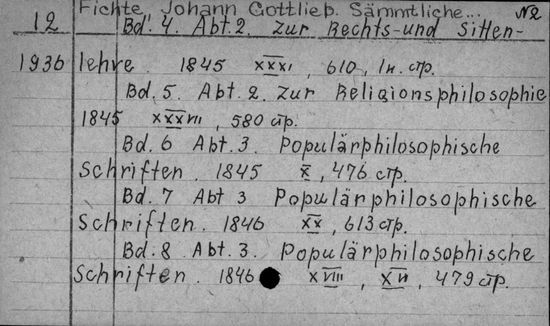 Fichte Johann Gottlieb. Sämmtliche... №2
12 Bd. 4. Abt. 2. Zur Rechts-und Sitten-
1936 lehre. 1845 XXXXI, 610, In. стр.
Bd. 5. Abt. 2. Zur Religionsphilosophie
1845 XXXVII, 580 стр.
Bd. 6 Abt. 3. Populärphilosophische
Schriften. 1845 X, 476 стр.
Bd. 7 Abt 3 Populärphilosophische
Schriften. 1846 XX, 613 стр.
Bd. 8 Abt. 3. Populärphilosophische
Schriften. 1846 XVIII, XII, 479 стр.